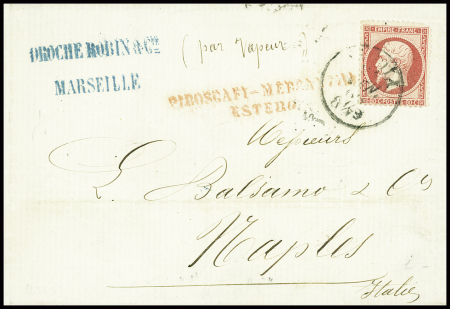 DROCHE ROBIN & Cie
MARSEILLE
(par Vapeur)
EMPIRE FRANC.
80 C POSTES 80 C
PIROSCAFI-MERCANTILI
ESTERO
Messieurs
L. Balsamo & Cie
Naples
Italie